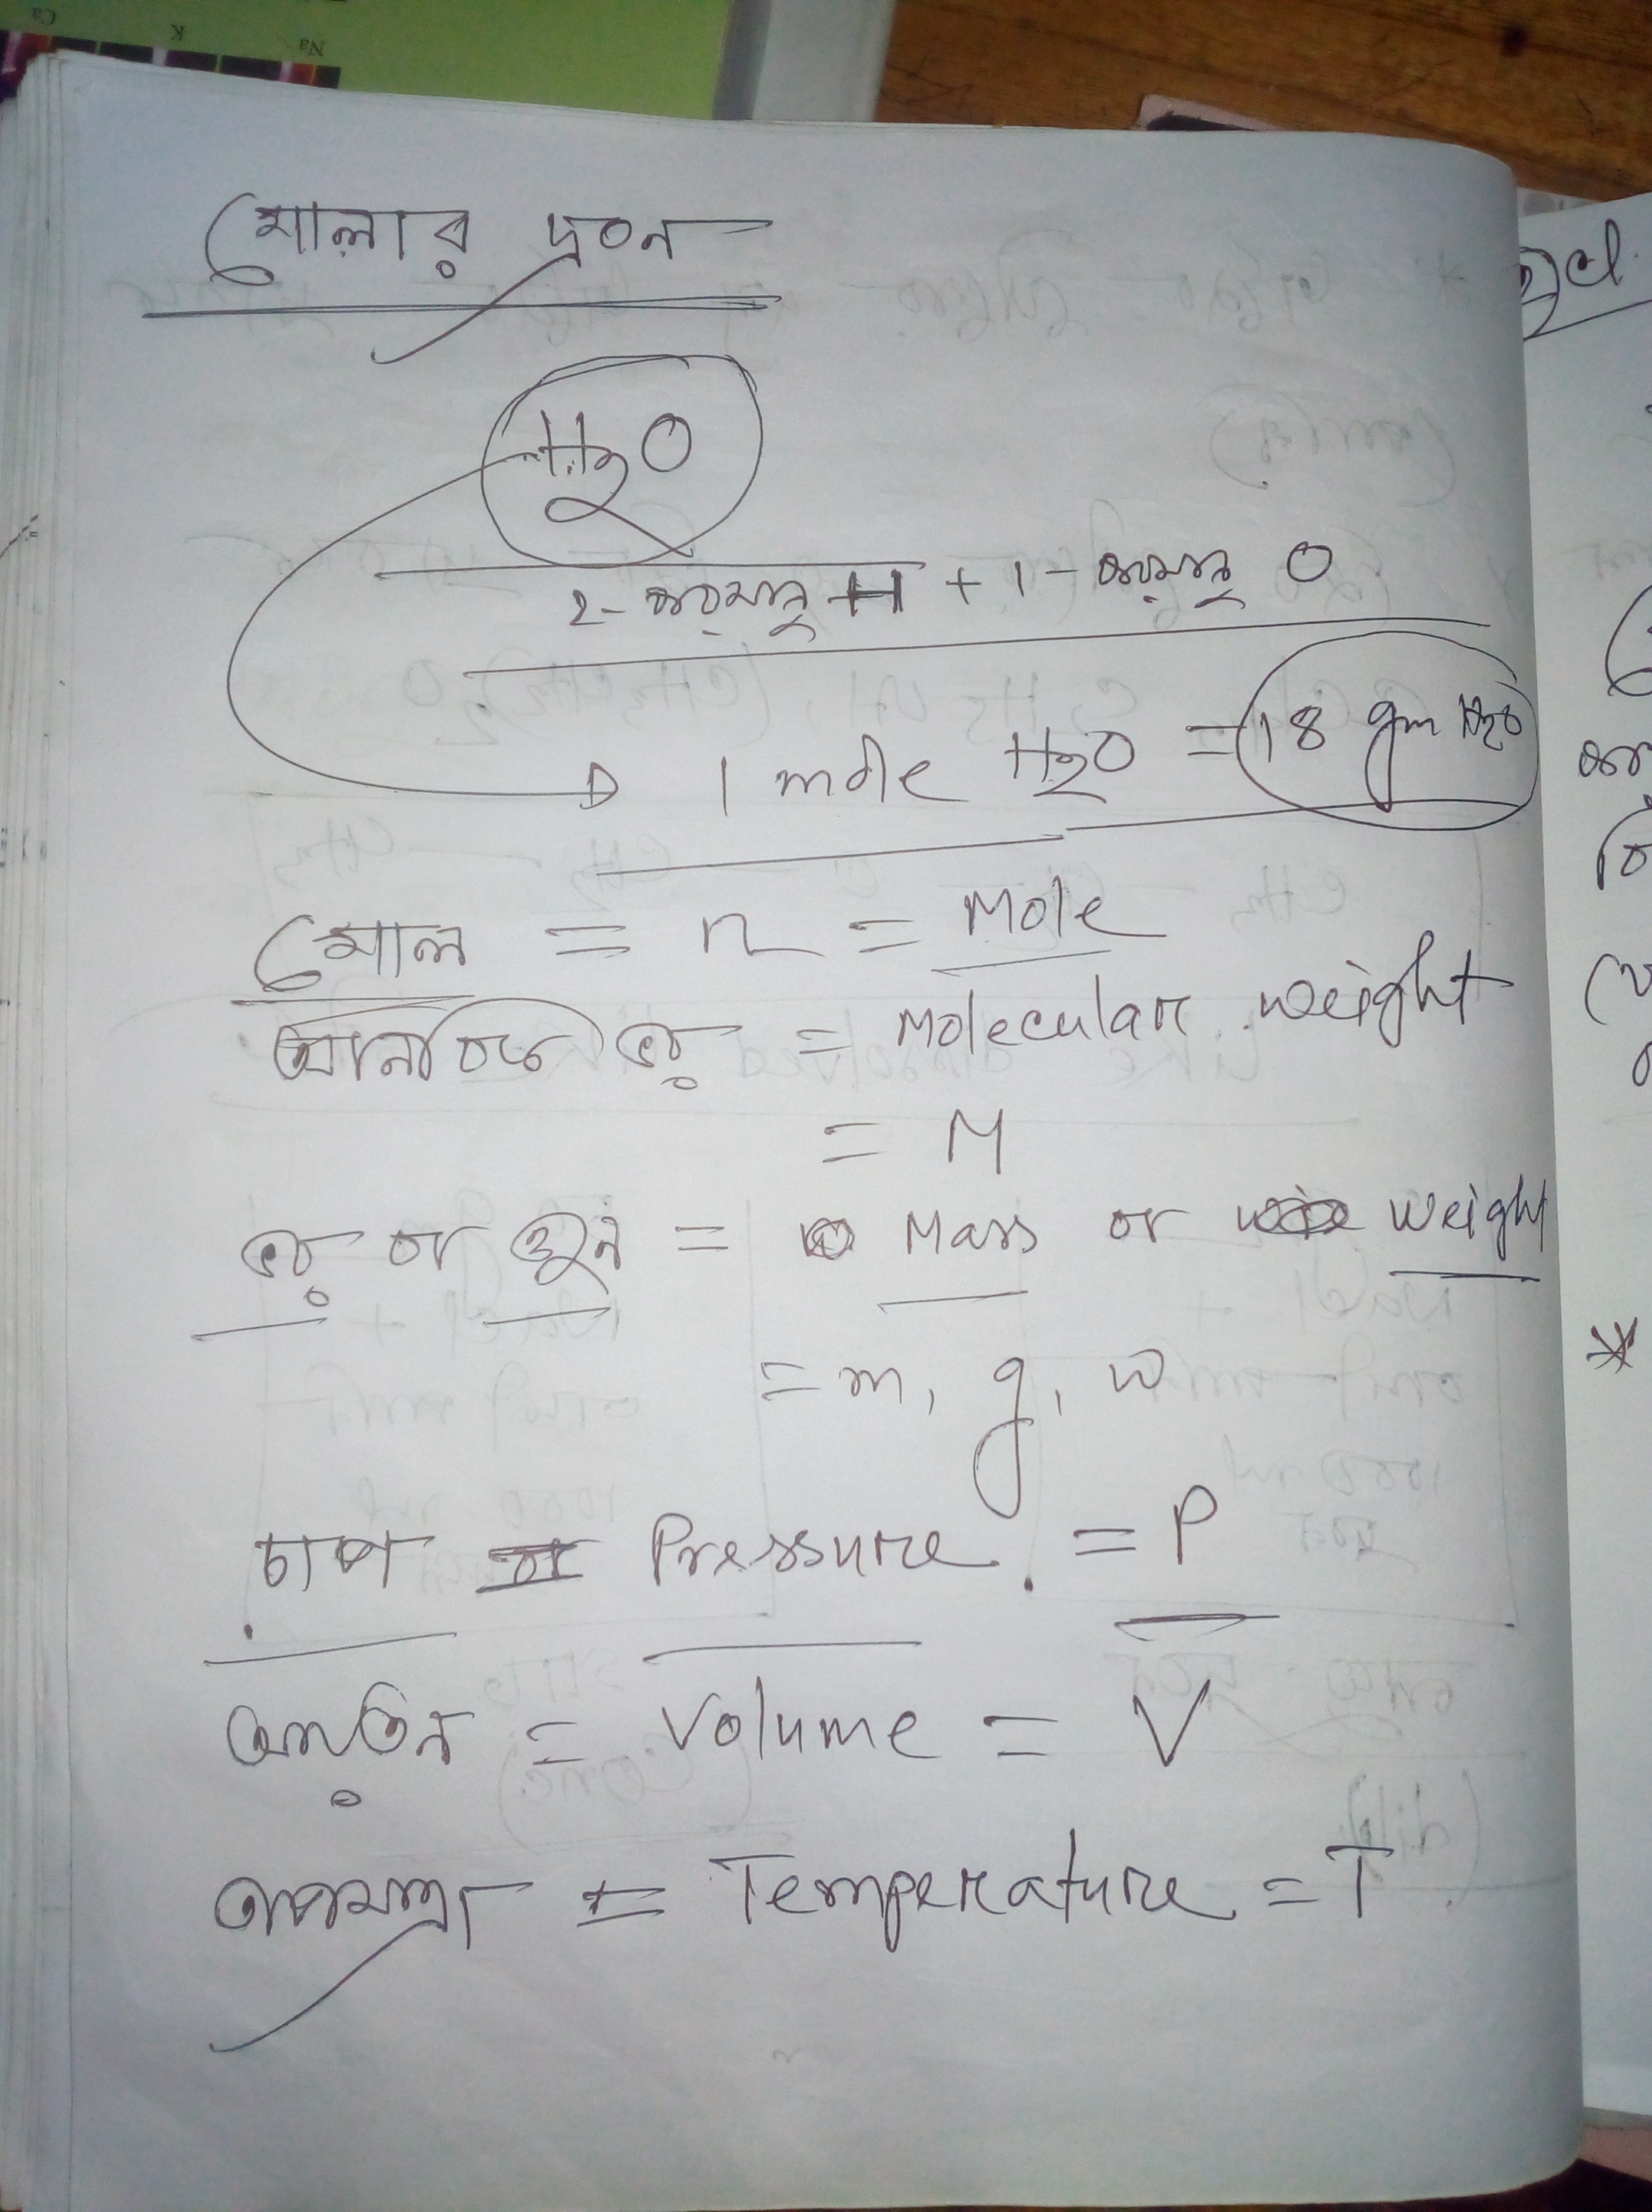 মোলার দ্রবন
H₂O
2-পরমানু H + 1-পরমানু O
1 mole H₂O = 18 gm H₂O
মোল = n = Mole
আনবিক ভর = Molecular weight
= M
ভর বা ওজন = Mass or weight
= m, g, w
চাপ = Pressure = P
আয়তন = Volume = V
তাপমাত্রা = Temperature = T